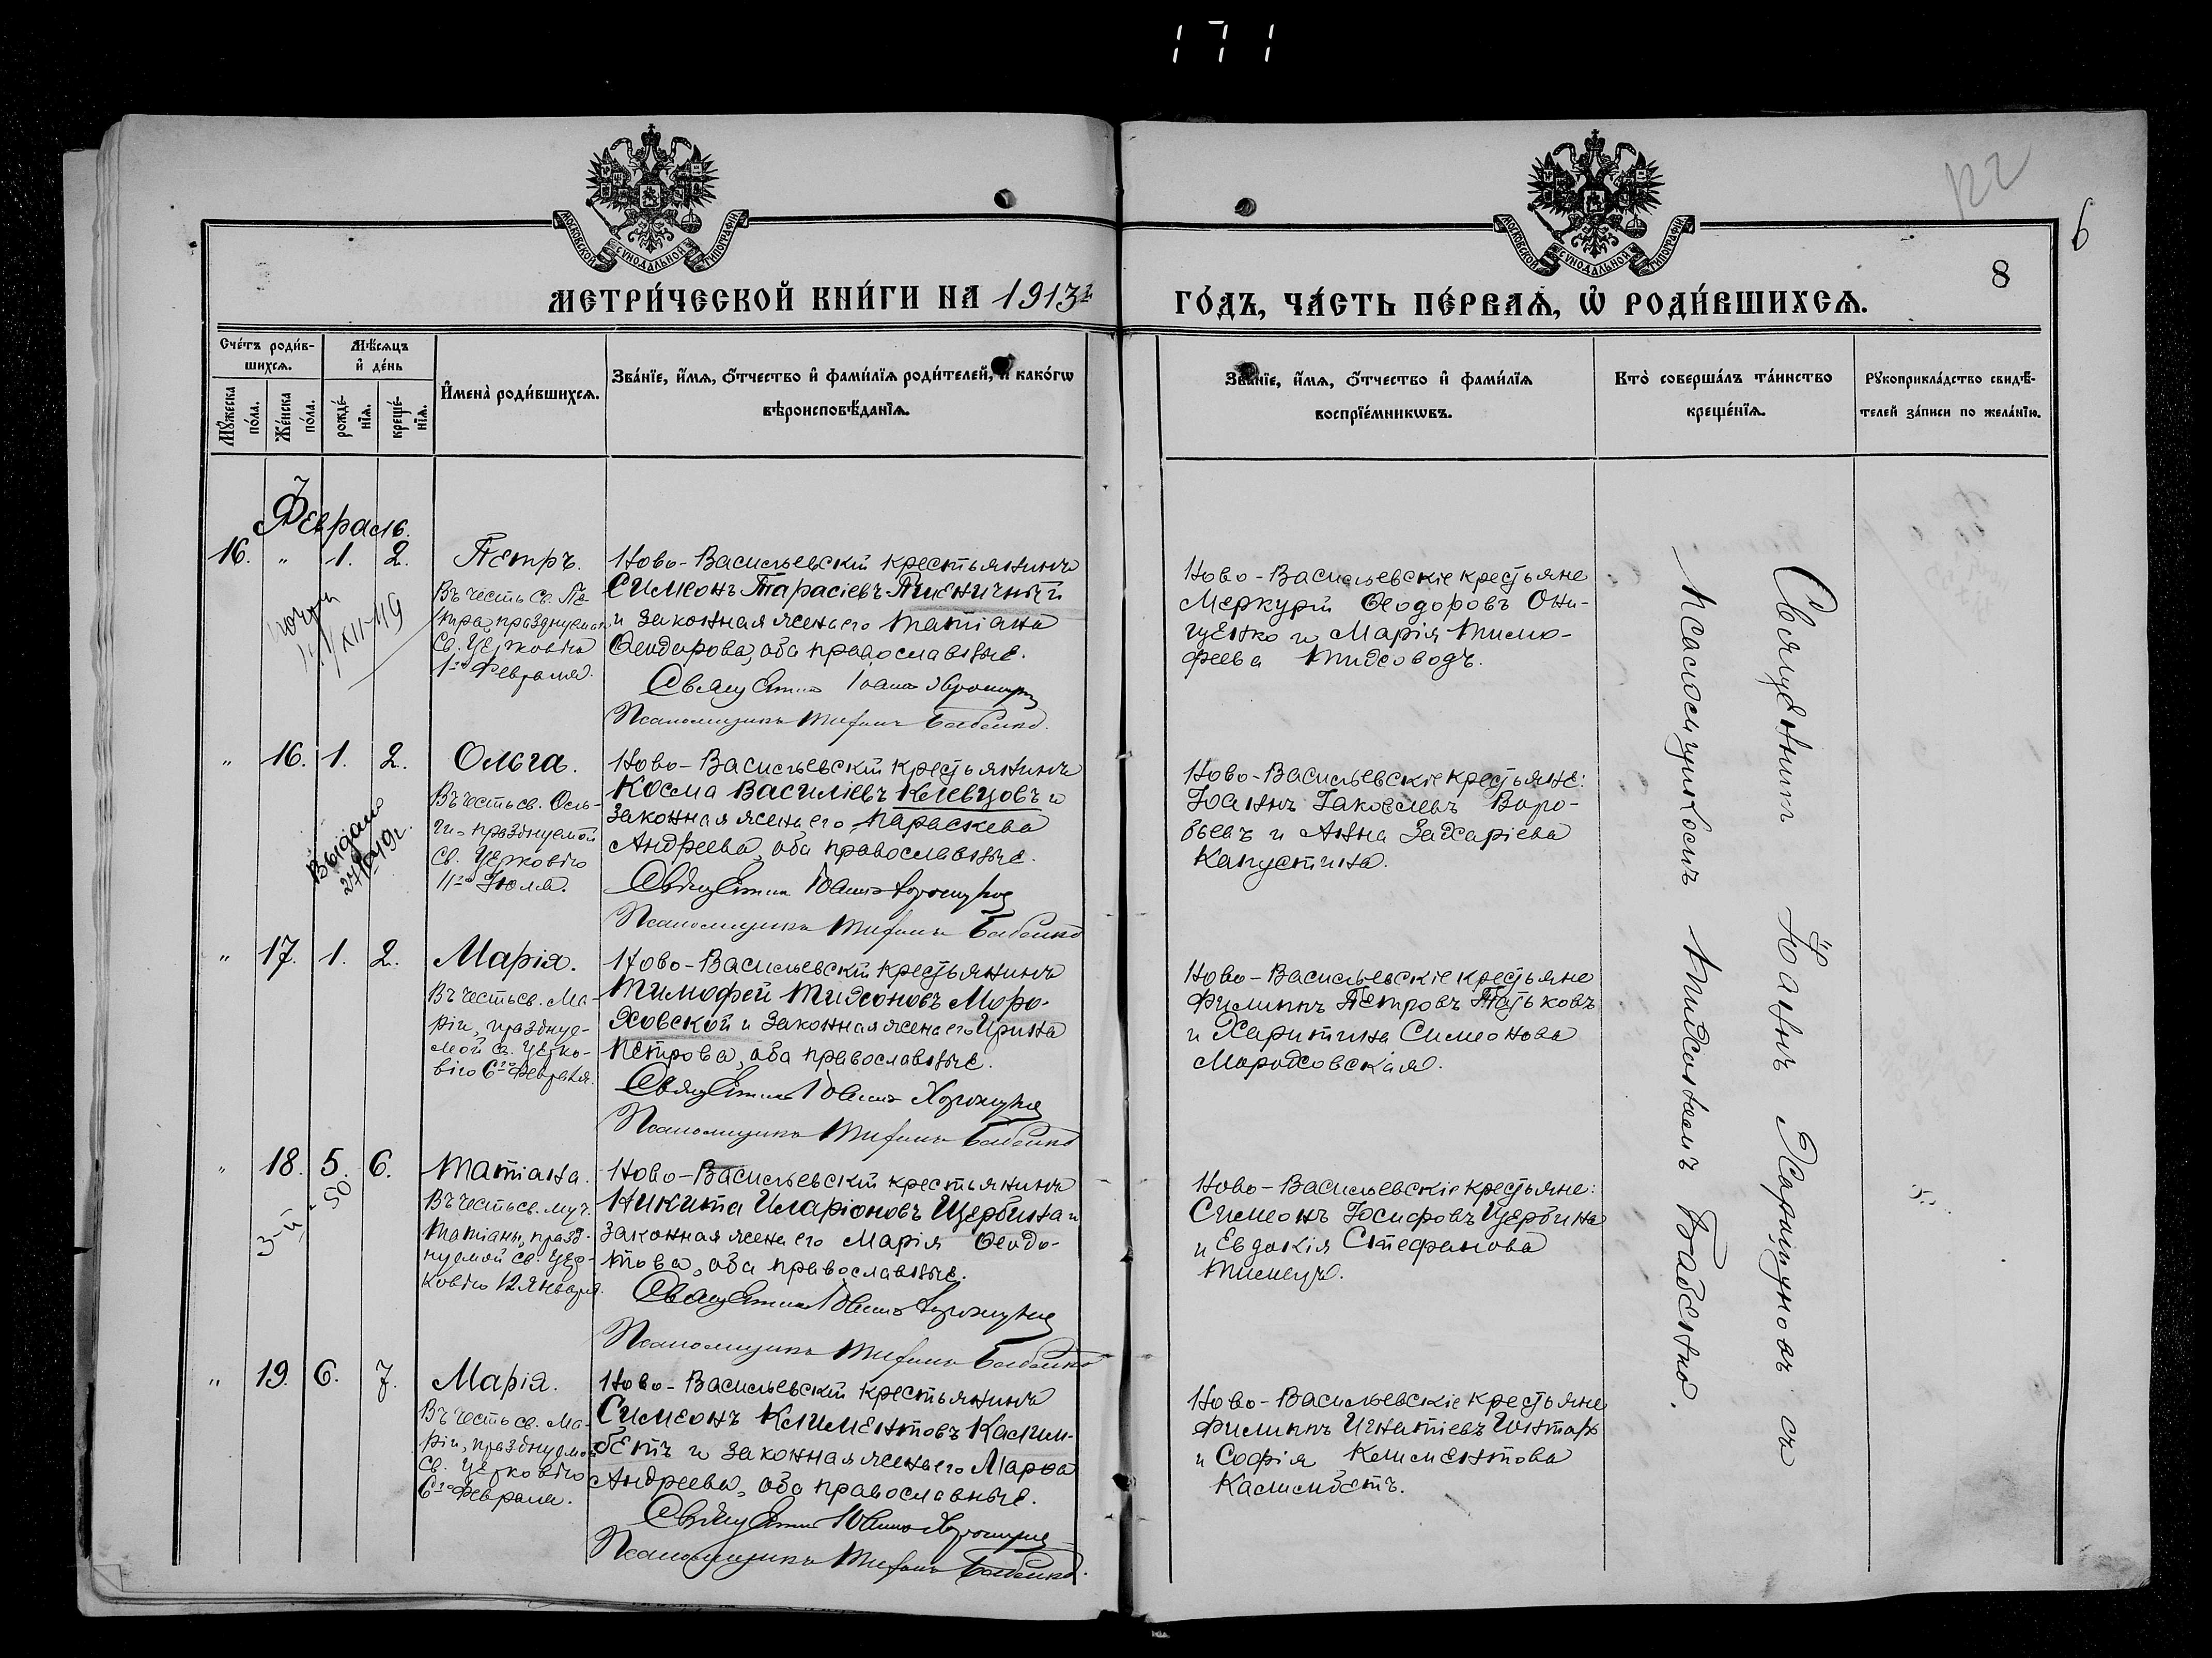 171
122
6
8
МОСКОВСКОЙ СѴНОДАЛЬНОЙ ТИПОГРАФІИ
МОСКОВСКОЙ СѴНОДАЛЬНОЙ ТИПОГРАФІИ
МЕТРИ́ЧЕСКОЙ КНИ́ГИ НА 1913й
ГО́ДЪ, ЧА́СТЬ ПЕ́РВАѦ, Ѽ РОДИ́ВШИХСѦ.
Сче́тъ роди́в-
шихсѧ.
Мѣ́сѧцъ
и҆ де́нь
Мꙋ́жеска
по́ла.
Же́нска
по́ла.
рожде́-
нїѧ.
креще́-
нїѧ.
И҆мена̀ роди́вшихсѧ.
Зва́нїе, и҆́мѧ, ѻ҆́тчество и҆ фами́лїѧ роди́телей, и҆ како́гѡ
вѣроисповѣ́данїѧ.
Зва́нїе, и҆́мѧ, ѻ҆́тчество и҆ фами́лїѧ
воспрїе́мникѡвъ.
Кто̀ соверша́лъ та́инство
креще́нїѧ.
Рꙋкоприкла́дство свидѣ́-
телей за́писи по жела́нїю.
Февраль.
16. " 1. 2. Петръ.
Въ честь св. Пе-
тра, празднуемаго
Св. Церковію
1го Февраля.
Ново-Васильевскій крестьянинъ
Симеонъ Тарасіевъ Пшеничный
и законная жена его Татіана
Ѳеодорова, оба православные.
Священникъ Іоаннъ
Псаломщикъ Тихонъ Бабенко.
Ново-Васильевскіе крестьяне
Меркурій Ѳеодоровъ Они-
щенко и Марія Тимо-
феева Тиховодъ.
" 16. 1. 2. Ольга.
Въ честь св. Оль-
ги, празднуемой
Св. Церковію
11го Іюля.
Выдано
Ново-Васильевскій крестьянинъ
Косма Василіевъ Клевцовъ и
законная жена его Параскева
Андреева, оба православные.
Священникъ Іоаннъ
Псаломщикъ Тихонъ Бабенко
Ново-Васильевскіе крестьяне:
Іоаннъ Іаковлевъ Воро-
бьевъ и Анна Захаріева
Капустина.
" 17. 1. 2. Марія.
Въ честь св. Ма-
ріи, празднуе-
мой Св. Церко-
вію 6го Февраля.
Ново-Васильевскій крестьянинъ
Тимофей Тихоновъ Моро-
ховской и законная жена его Ирина
Петрова, оба православные.
Священникъ Іоаннъ
Псаломщикъ Тихонъ Бабенко
Ново-Васильевскіе крестьяне
Филиппъ Петровъ Татьковъ
и Харитина Симеонова
Мороховская.
" 18. 5. 6. Татіана.
Въ честь св. муч.
Татіаны, празд-
нуемой св. Цер-
ковію 12 Января.
Ново-Васильевскій крестьянинъ
Никита Иларіоновъ Щербина и
законная жена его Марія Ѳеодо-
това, оба православные.
Священникъ Іоаннъ
Псаломщикъ Тихонъ Бабенко
Ново-Васильевскіе крестьяне:
Симеонъ Іосифовъ Щербина
и Евдокія Стефанова
" 19. 6. 7. Марія.
Въ честь св. Ма-
ріи, празднуемой
Св. Церковію
6го Февраля.
Ново-Васильевскій крестьянинъ
Симеонъ Климентовъ Калим-
бетъ и законная жена его Марфа
Андреева, оба православные.
Священникъ Іоаннъ
Псаломщикъ Тихонъ Бабенко.
Ново-Васильевскіе крестьяне
Филиппъ Игнатіевъ
и Софія Климентова
Калимбетъ.
Священникъ Іоаннъ съ
Псаломщикомъ Тихономъ Бабенко.